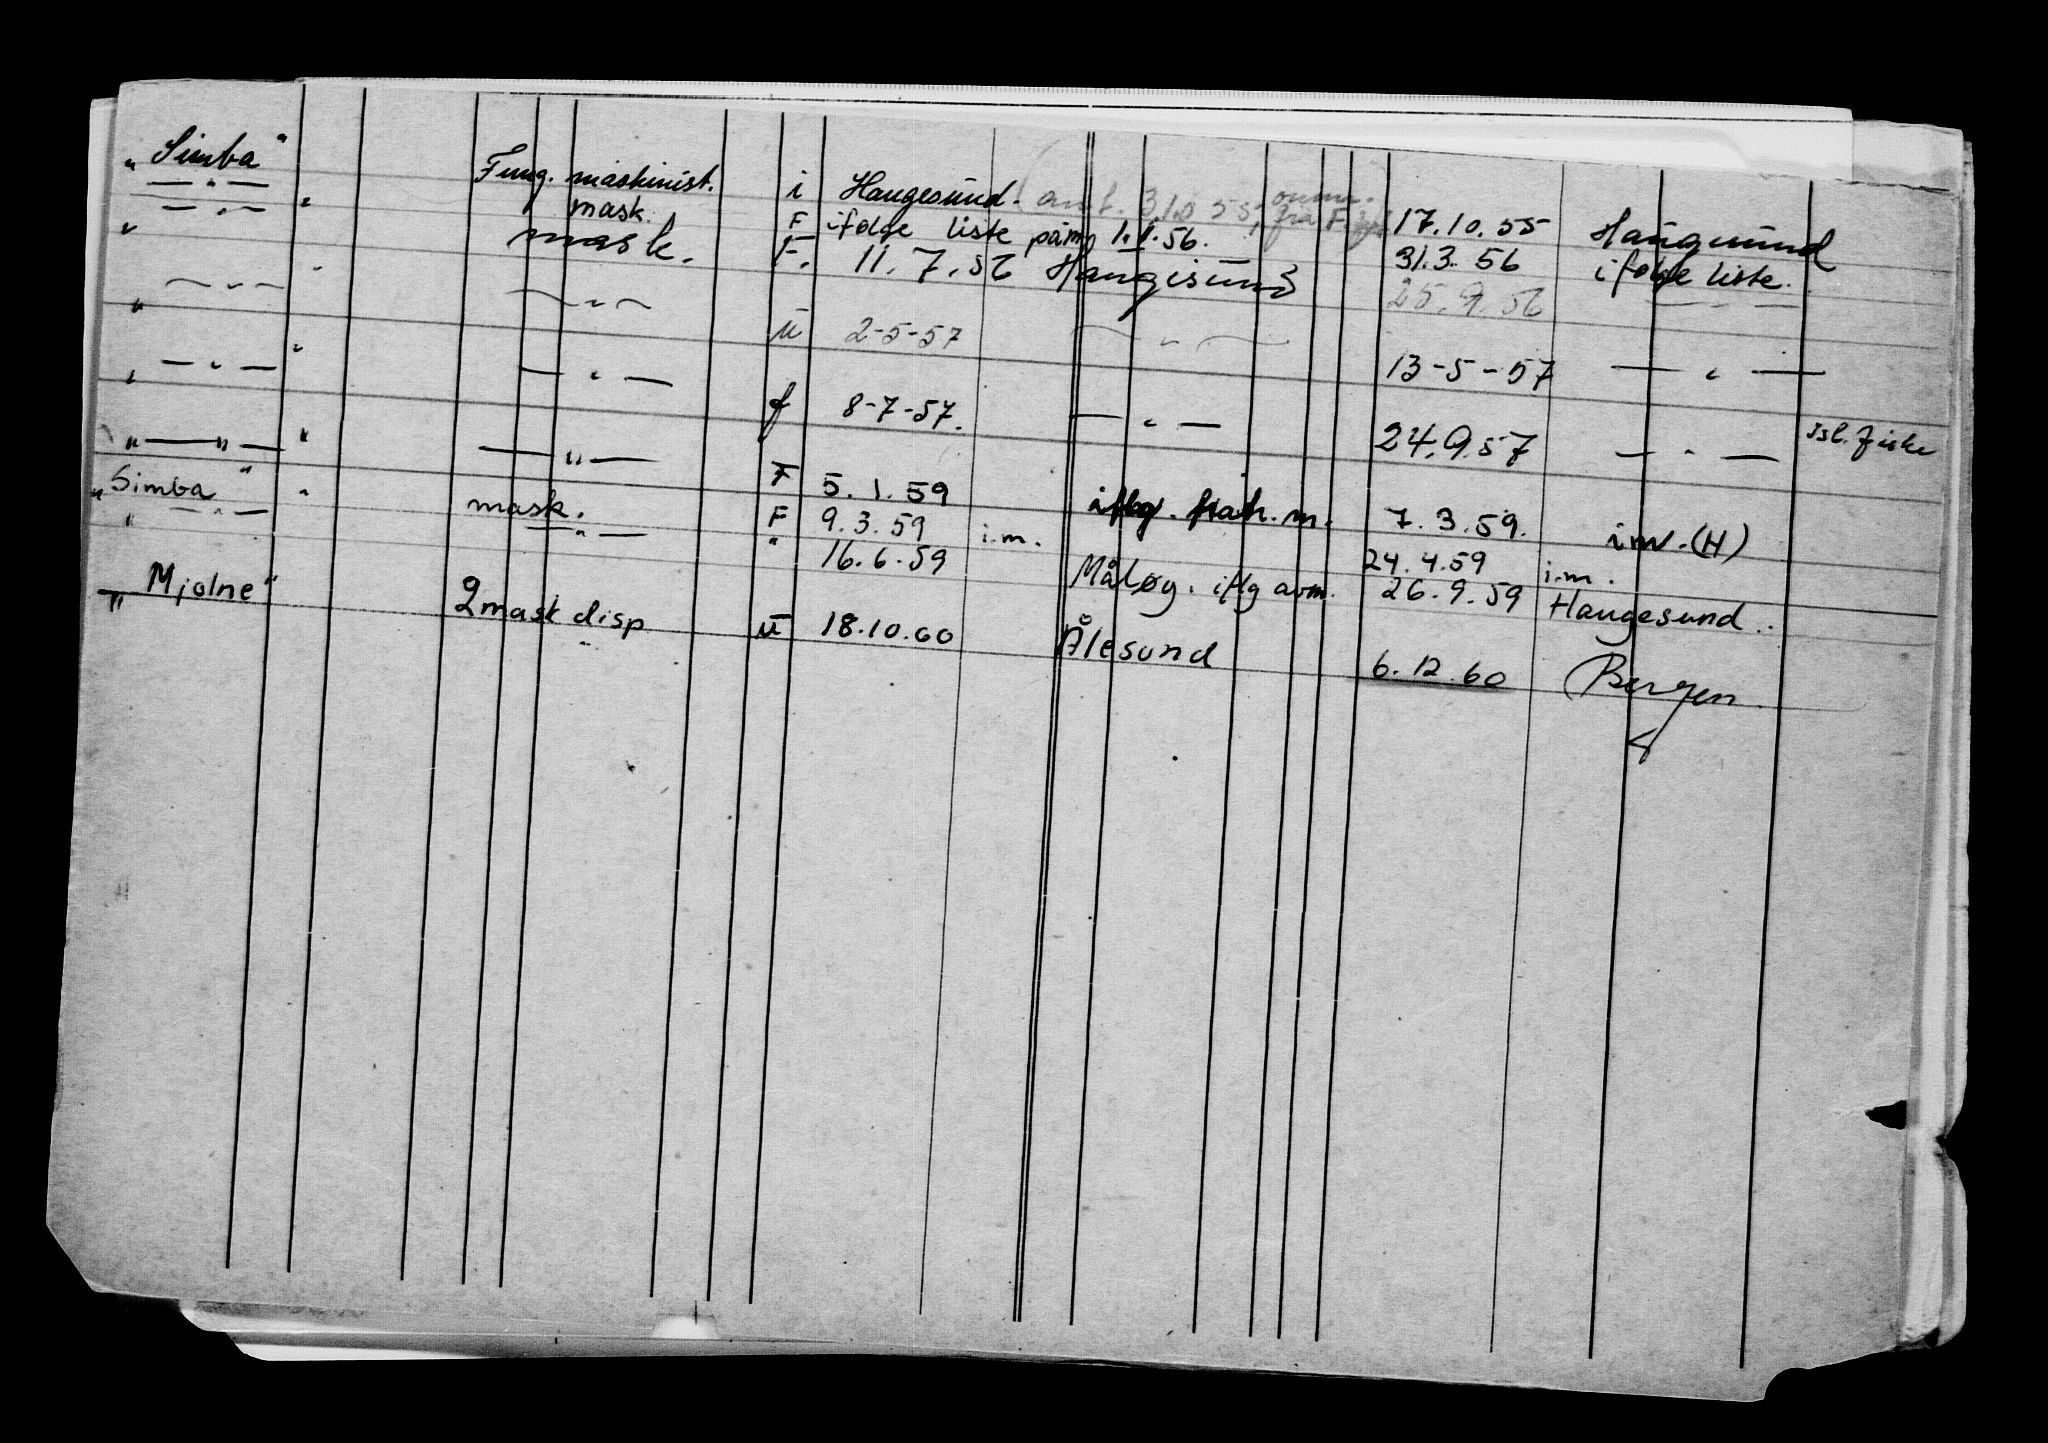 „Simba" Fung. maskinist. i Haugesund. 17.10.55 Haugesund
— " — " mask. F ifølge liste påm 1.1.56. 31.3.56 ifølge liste.
— " — mask. F. 11.7.56 Haugesund 25.9.56 — " —
— " — — " — u 2-5-57 — " — 13-5-57 — " —
— " — " — " — f 8-7-57. — " — 24.9.57 — " — Isl. fiske
— " — " — " — F 5.1.59 iflg. 7.3.59. inv.(H)
„Simba" " mask. F 9.3.59 i.m. 24.4.59 i.m.
" — " — — " — " 16.6.59 Måløy. iflg avm. 26.9.59 Haugesund.
„Mjølne" 2 mask disp u 18.10.60 Ålesund 6.12.60 Bergen